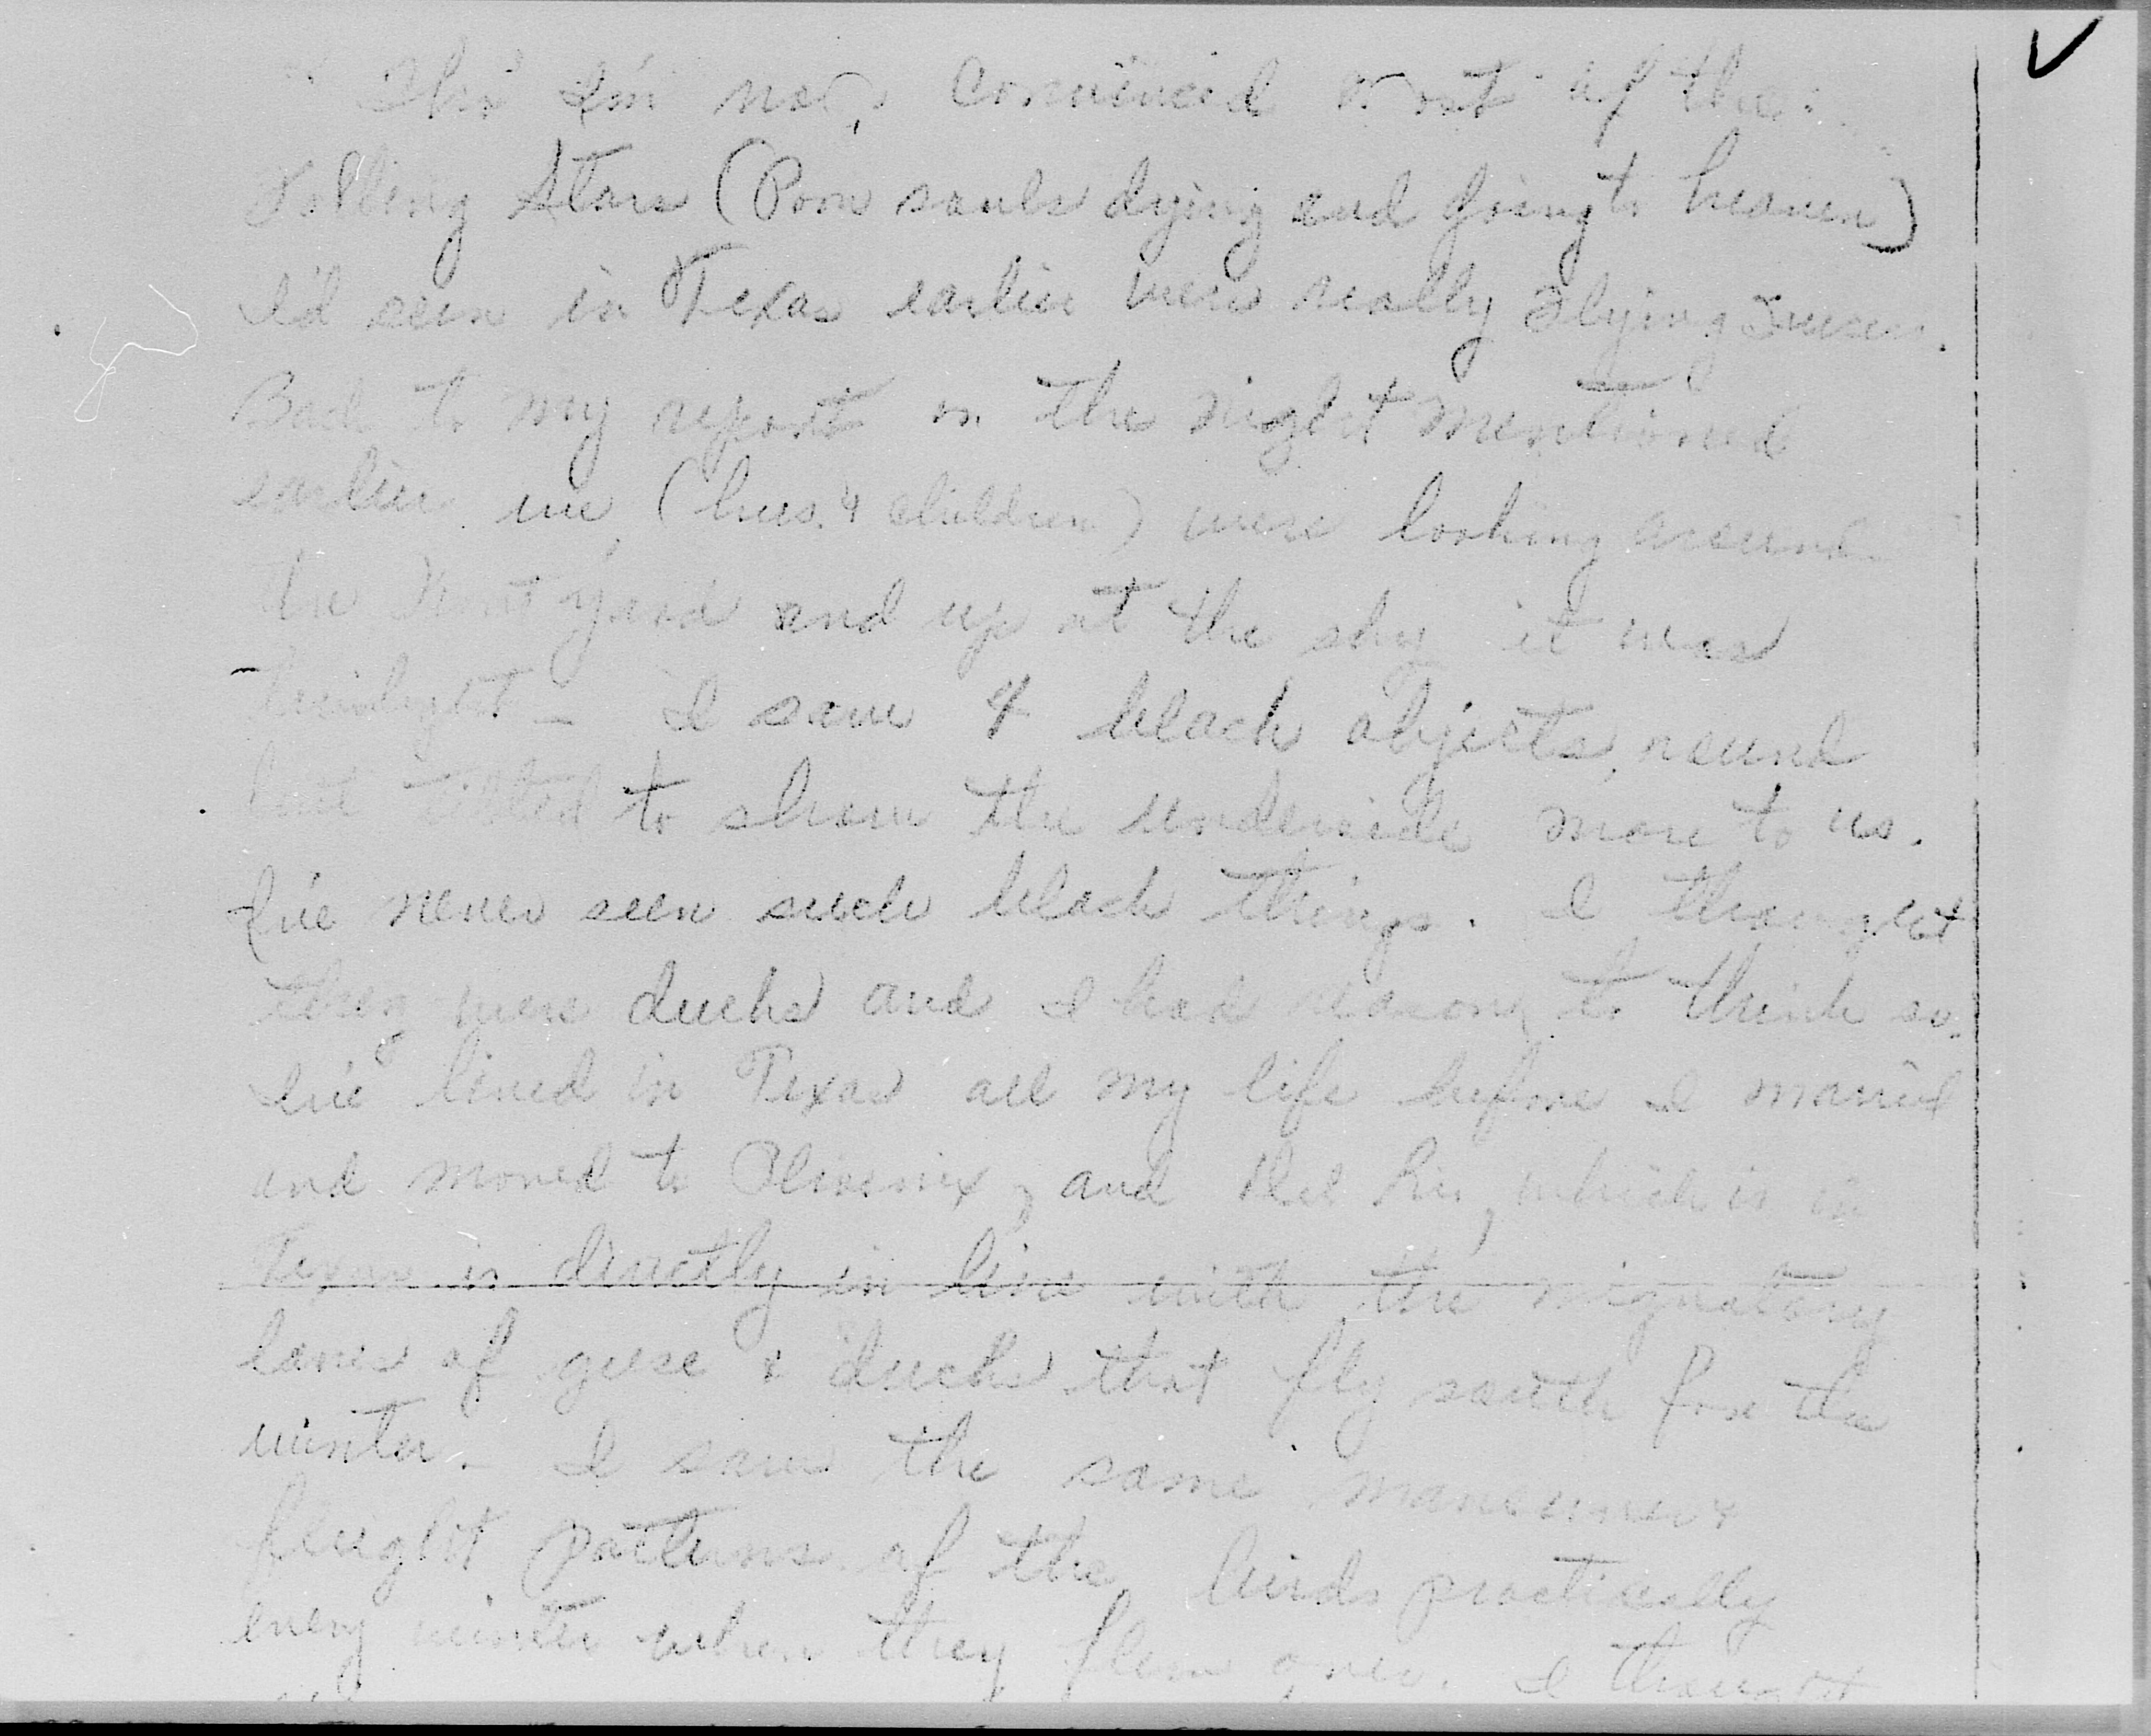 Tho' I'm now convinced most of the
Falling Stars (Poor souls dying and going to heaven)
I'd seen in Texas earlier were really Flying
Back to my report on the night mentioned
earlier we (hus. & children) were looking around
the front yard and up at the sky it was
twilight - I saw 4 black objects, round
but tilted to show the underside more to us.
I've never seen such black things. I thought
they were ducks and I had reason to think so.
I've lived in Texas all my life before I married
and moved to Phoenix, and Del Rio, which is in
Texas is directly in line with the migratory
lanes of geese & ducks that fly south for the
winter. I saw the same maneuver &
flight patterns of the birds practically
every winter when they flew over. I thought